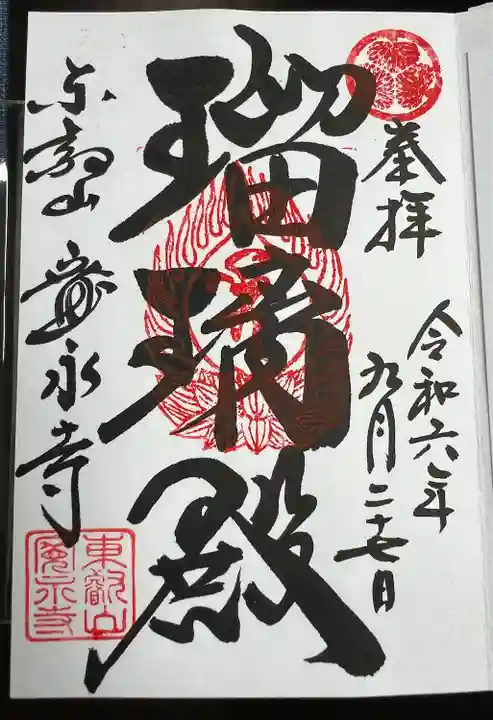 奉拝
令和六年
九月二十七日
瑠璃殿
東叡山 寛永寺
東叡山
寛永寺